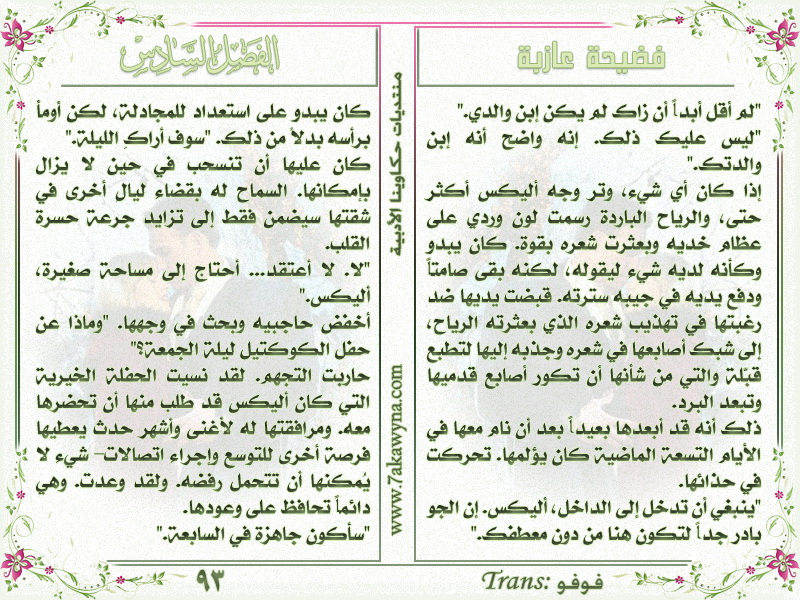 فضيحة عازبة
"لم أقل أبداً أن زاك لم يكن إبن والدي."
"ليس عليك ذلك. إنه واضح أنه إبن
والدتك."
إذا كان أي شيء، وتر وجه أليكس أكثر
حتى، والرياح الباردة رسمت لون وردي على
عظام خديه وبعثرت شعره بقوة. كان يبدو
وكأنه لديه شيء ليقوله، لكنه بقى صامتاً
ودفع يديه في جيبه سترته. قبضت يديها ضد
رغبتها في تهذيب شعره الذي بعثرته الرياح،
إلى شبك أصابعها في شعره وجذبه إليها لتطبع
قبّلة والتي من شأنها أن تكور أصابع قدميها
وتبعد البرد.
ذلك أنه قد أبعدها بعيداً بعد أن نام معها في
الأيام التسعة الماضية كان يؤلمها. تحركت
في حذائها.
"ينبغي أن تدخل إلى الداخل، أليكس. إن الجو
بادر جداً لتكون هنا من دون معطفك."
Trans: فوفو
منتديات حكاوينا الأدبية
www.7akawyna.com
الفصل السادس
كان يبدو على استعداد للمجادلة، لكن أومأ
برأسه بدلاً من ذلك. "سوف أراكِ الليلة."
كان عليها أن تنسحب في حين لا يزال
بإمكانها. السماح له بقضاء ليال أخرى في
شقتها سيضمن فقط إلى تزايد جرعة حسرة
القلب.
"لا. لا أعتقد... أحتاج إلى مساحة صغيرة،
أليكس."
أخفض حاجبيه وبحث في وجهها. "وماذا عن
حفل الكوكتيل ليلة الجمعة؟"
حاربت التجهم. لقد نسيت الحفلة الخيرية
التي كان أليكس قد طلب منها أن تحضرها
معه. ومرافقتها له لأغنى وأشهر حدث يعطيها
فرصة أخرى للتوسع وإجراء اتصالات– شيء لا
يُمكنها أن تتحمل رفضه. ولقد وعدت. وهي
دائماً تحافظ على وعودها.
"سأكون جاهزة في السابعة."
٩٣